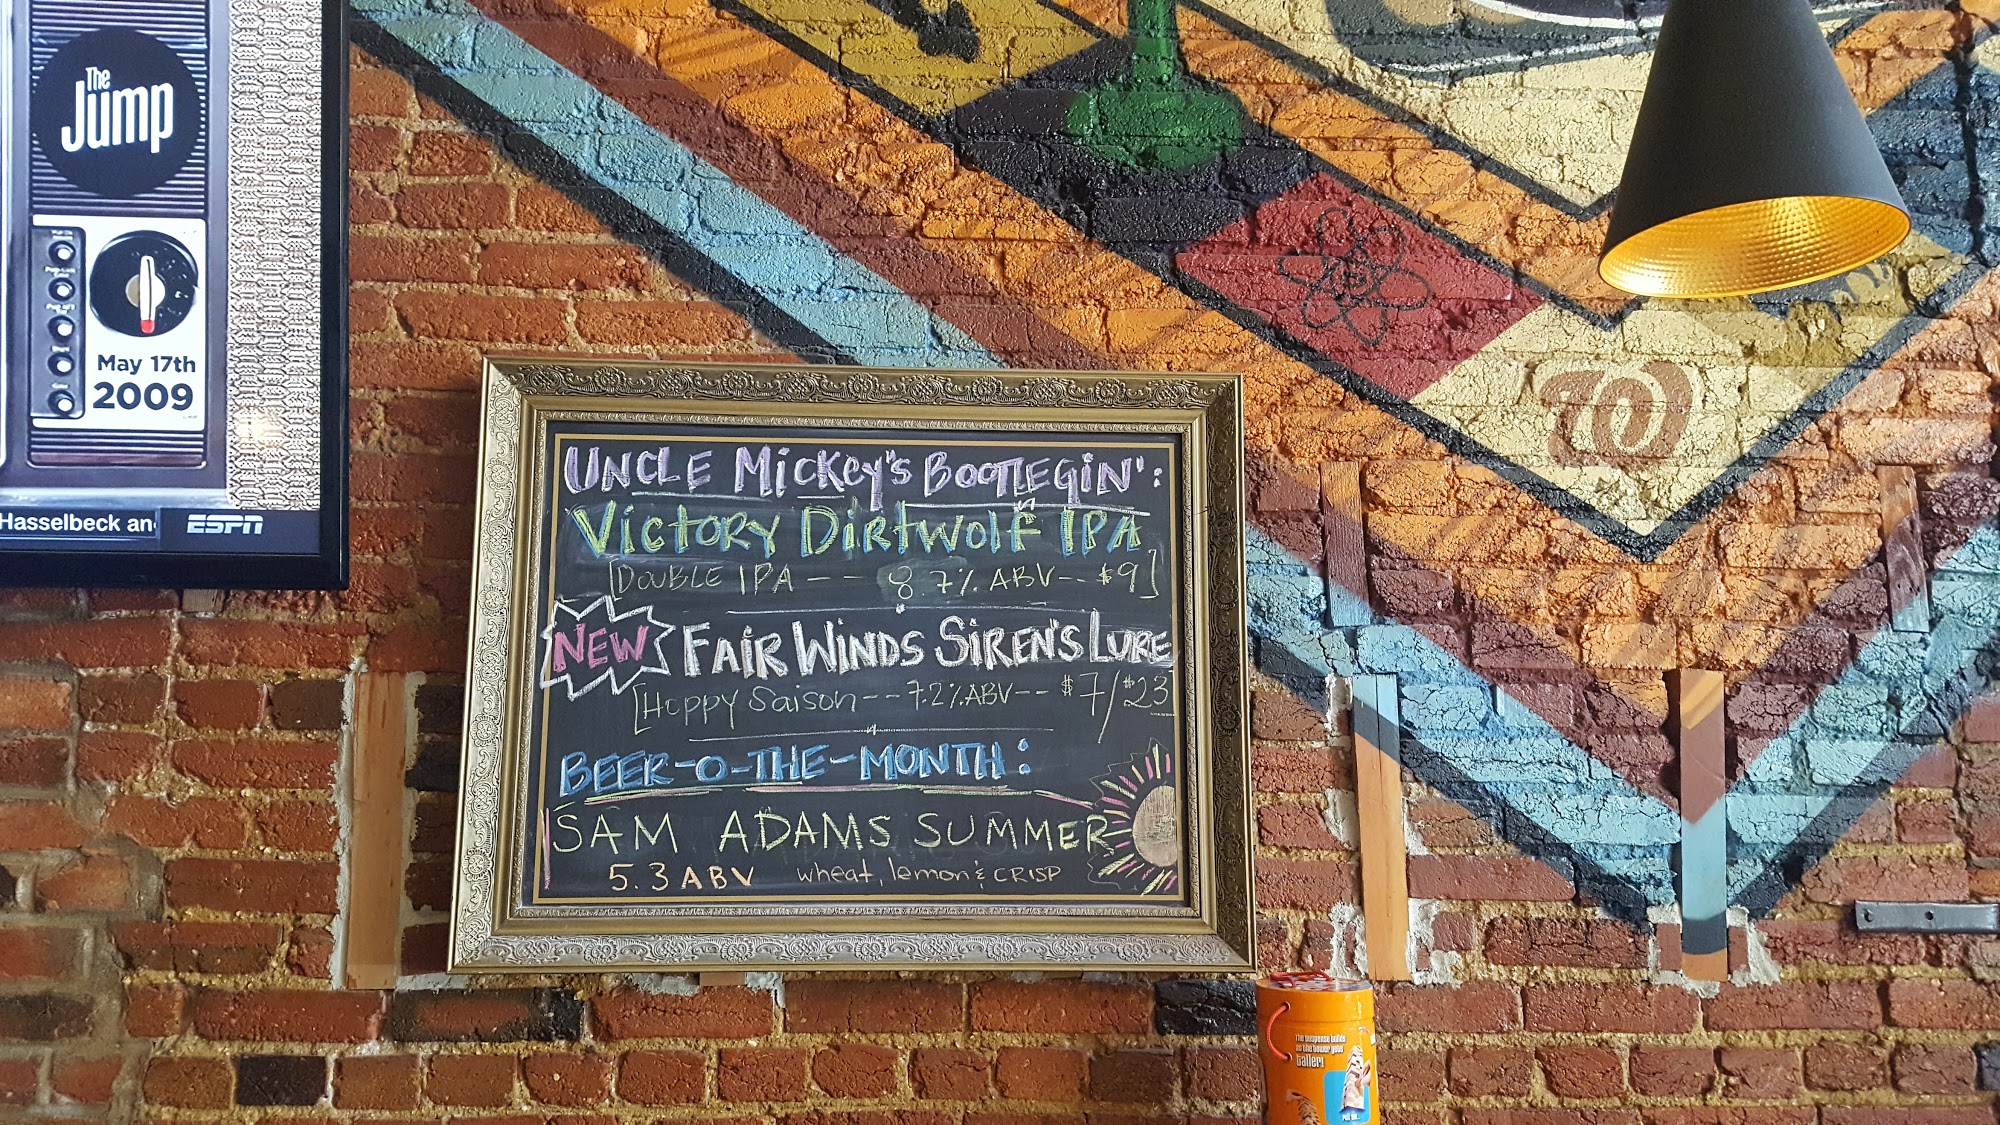 The
Jump
May 17th
2009
Hasselbeck an
ESPN
UNCLE MICKEY'S BOOTLEGIN':
VICTORY DIRTWOLF IPA
[DOUBLE IPA -- - 8.7% ABV-- $9]
NEW FAIR WINDS SIREN'S LURE
[Hoppy Saison -- 7.2% ABV-- $7/$23
BEER-O-THE-MONTH:
SAM ADAMS SUMMER
5.3 ABV wheat, lemon & CRISP
W
The suspense builds
as the tower gets
taller!